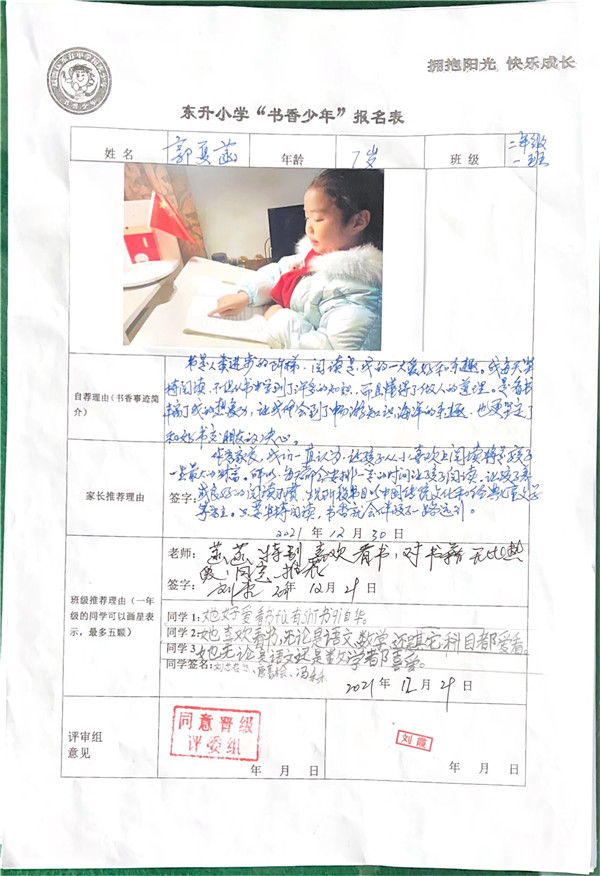 拥抱阳光 快乐成长
东升小学“书香少年”报名表
姓名 郭夏菡 年龄 7岁 班级 二年级
一班
自荐理由（书香事迹简介）
书是人类进步的阶梯，阅读是我的一大爱好和乐趣。我每天坚
持阅读，不但从书中学到了许多的知识，而且懂得了做人的道理。是看书
丰富了我的想象力，让我体会到了畅游知识海洋的乐趣，也更坚定了
和好书交朋友的决心。
家长推荐理由
作为家长，我们一直认为，让孩子从小喜欢上阅读将是孩子
一生最大的财富。所以，每天都会安排一定的时间让孩子阅读，让孩子养
成良好的阅读习惯，书目以中国传统文化和经典儿童文学
等为主。只要坚持阅读，书香就会伴孩子一路远行。
签字：
2021 年 12 月 30 日
班级推荐理由（一年级的同学可以画星表示，最多五颗）
老师： 菡菡特别喜欢看书，对书籍无比热
爱，同意推荐
签字： 年 12 月 29 日
同学 1： 她好爱看书fù有shī书qì自华。
同学 2： 她喜欢看书，无论是语文，数学，还是其它科目都爱看。
同学 3 她无论是语文还是数学都喜爱。
同学签名：
2021 年 12 月 29 日
评审组
意见
同意晋级
评委组
刘霞
年 月 日
年 月 日